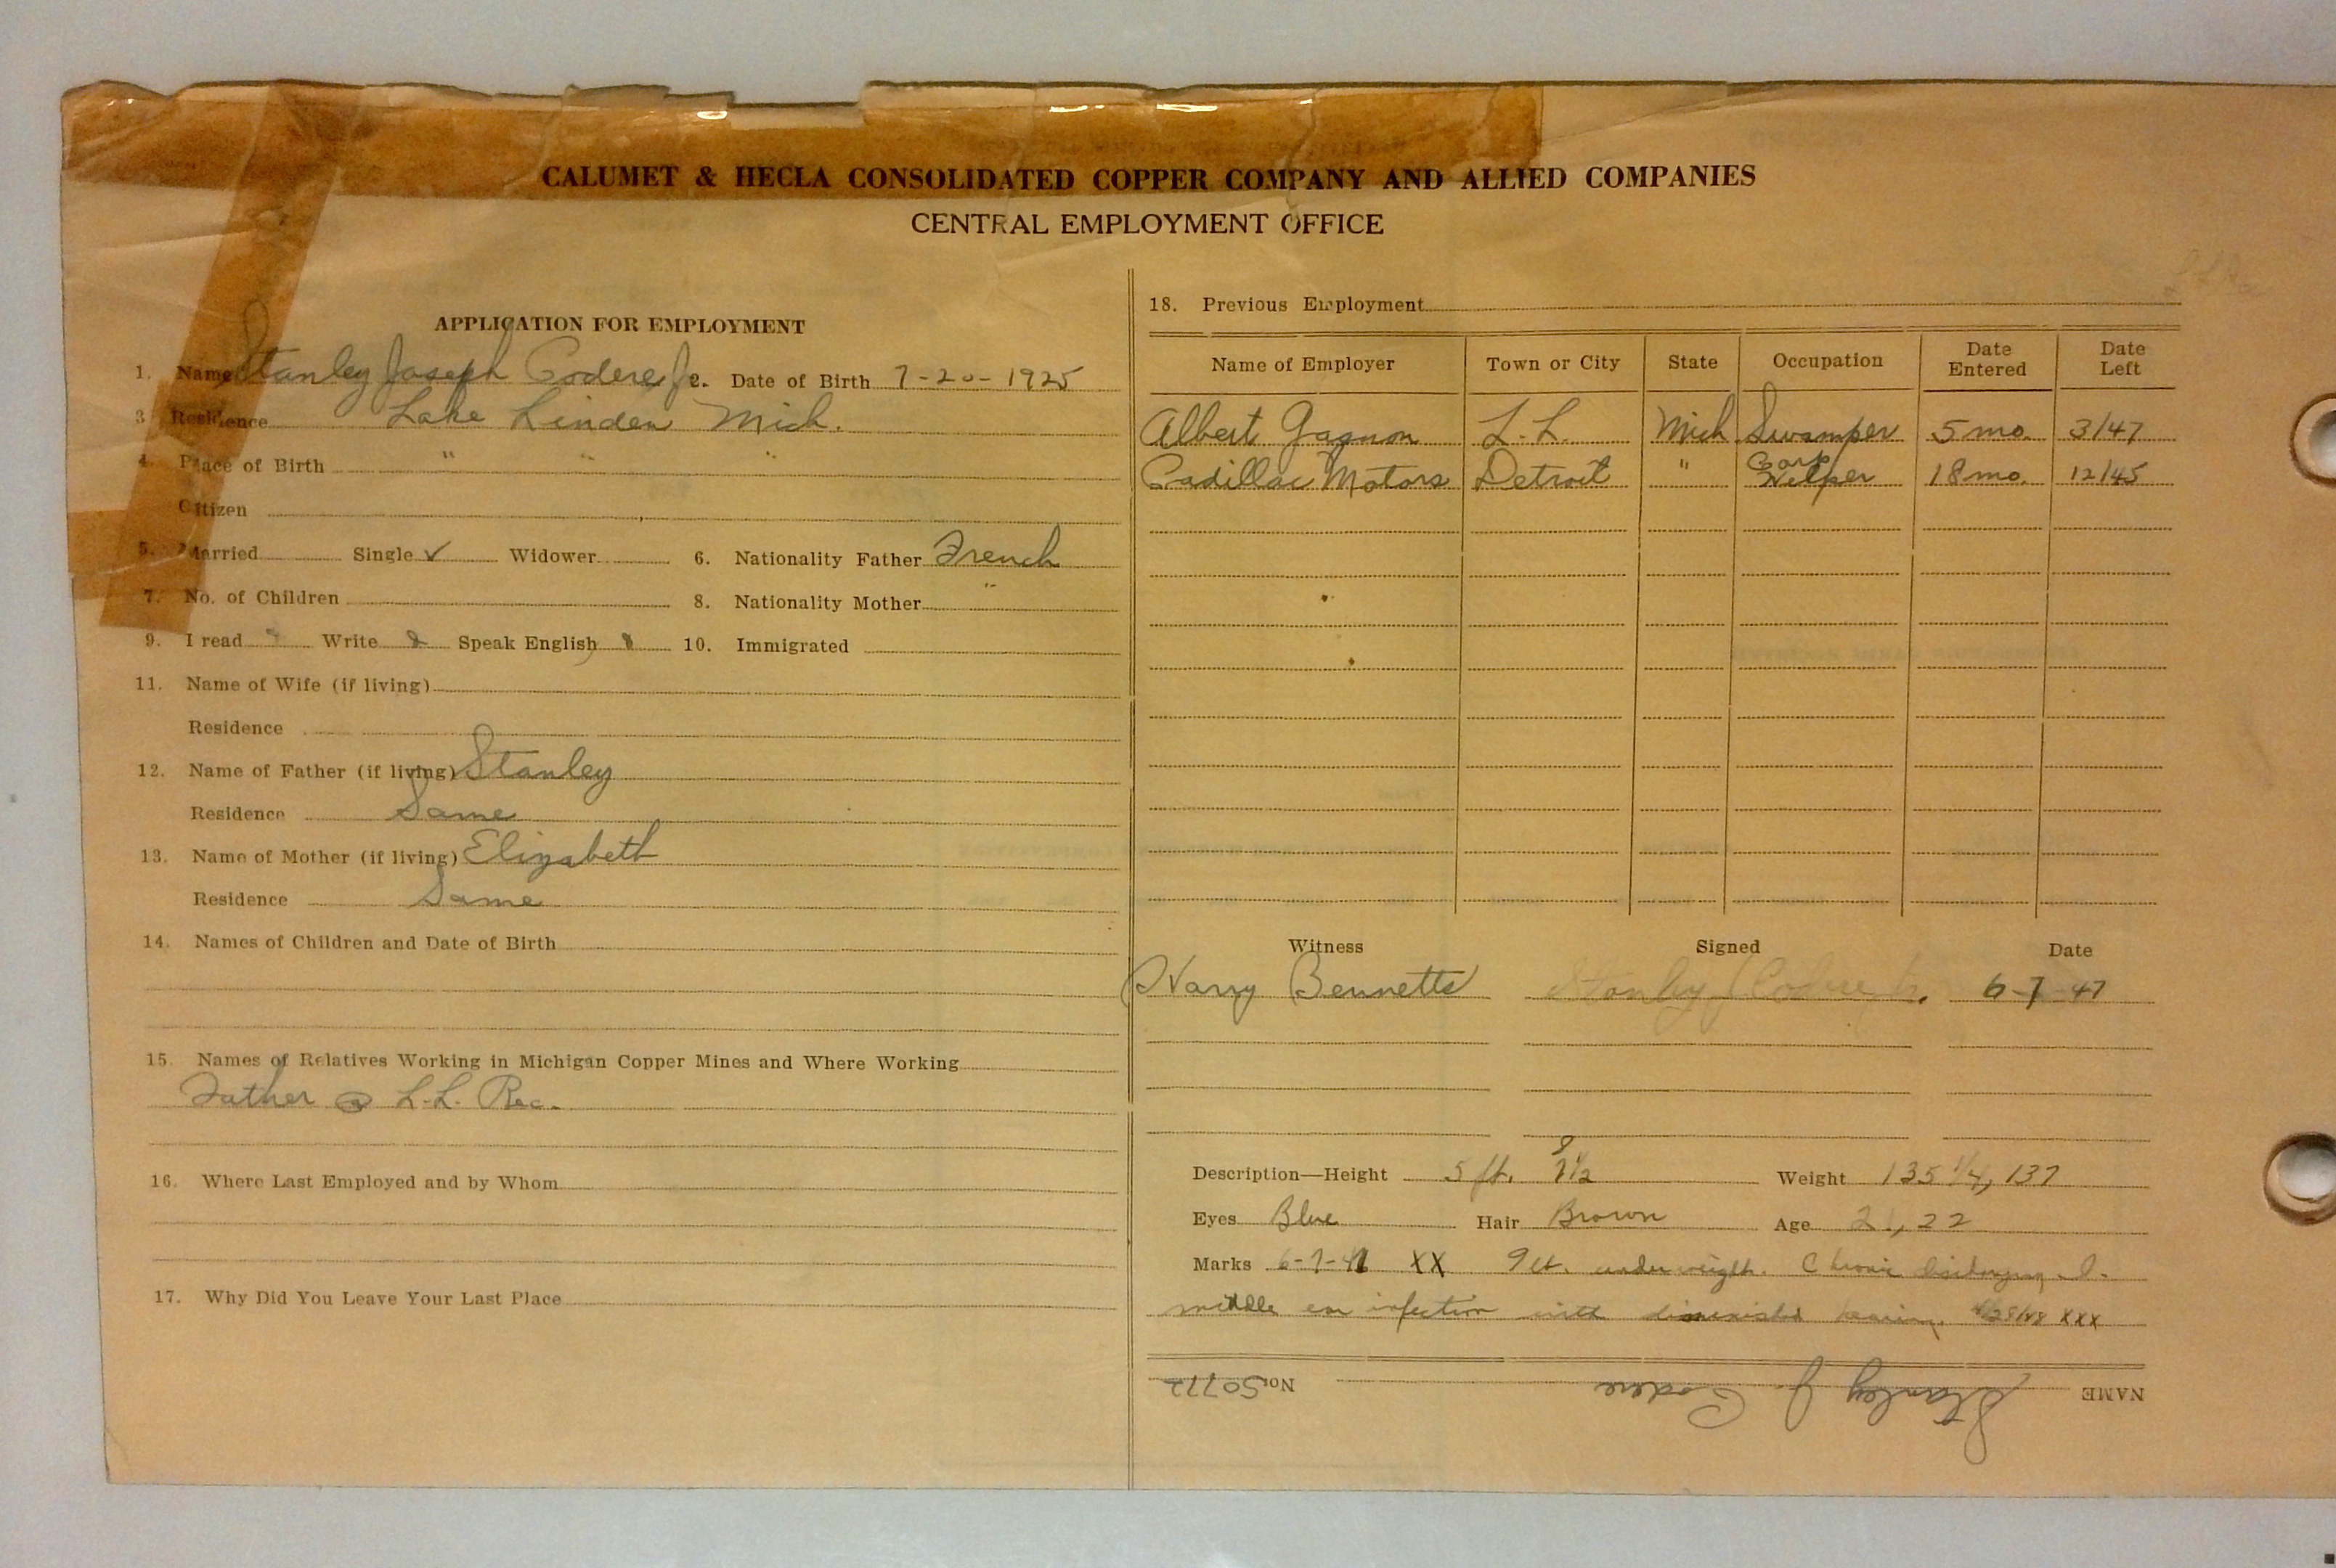 CALUMET & HECLA CONSOLIDATED COPPER COMPANY AND ALLIED COMPANIES
CENTRAL EMPLOYMENT OFFICE
APPLICATION FOR EMPLOYMENT
1. Name Stanley Joseph Codere Jr 2. Date of Birth 7-20-1925
3 Residence Lake Linden Mich.
4. Place of Birth " " "
Citizen
5. Married Single ✓ Widower 6. Nationality Father French
7. No. of Children 8. Nationality Mother "
9. I read Write Speak English 10. Immigrated
11. Name of Wife (if living)
Residence
12. Name of Father (if living) Stanley
Residence Same
13. Name of Mother (if living) Elizabeth
Residence Same
14. Names of Children and Date of Birth
15. Names of Relatives Working in Michigan Copper Mines and Where Working
Father @ L.L. Rec.
16. Where Last Employed and by Whom
17. Why Did You Leave Your Last Place
18. Previous Employment
Name of Employer Town or City State Occupation Date Entered Date Left
Albert Gagnon L.L. Mich Swamper 5 mo. 3/47
Cadillac Motors Detroit " Carp Helper 18 mo. 12/45
Witness Signed Date
Harry Bennetts Stanley J Codere Jr. 6-7-47
Description—Height 5 ft. 7 1/2 8 Weight 135 1/4, 137
Eyes Blue Hair Brown Age 21, 22
Marks 6-7-47 XX 9 lb. underweight. Chronic
middle ear infection with diminished hearing. 4/28/48 XXX
NAME Stanley J. Codere No. 50772